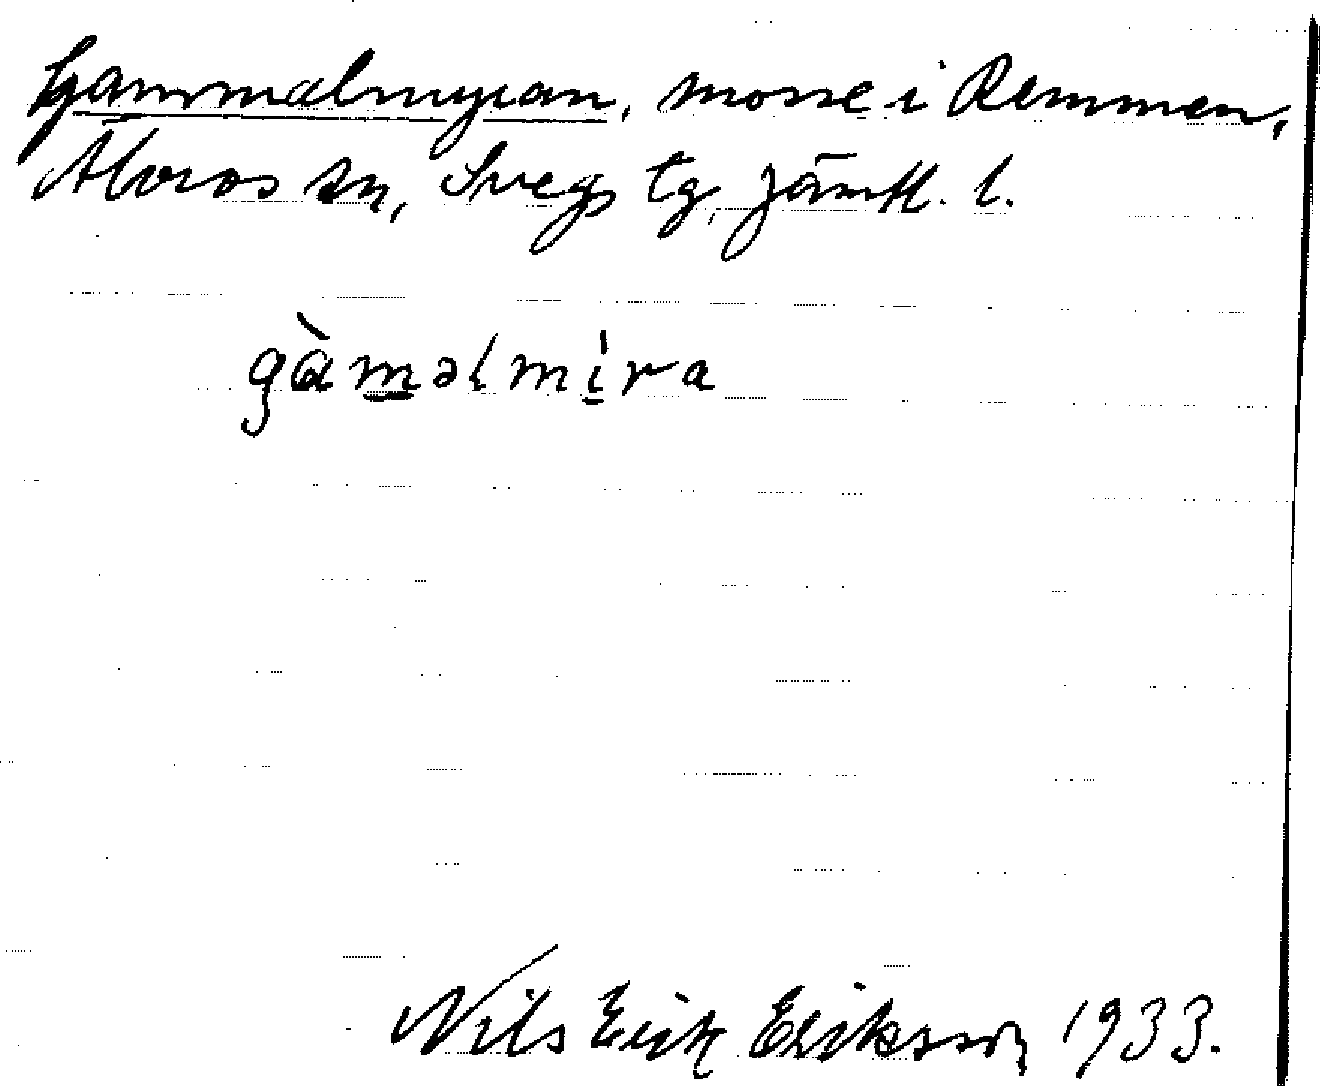 Gammalmyran, mosse i Remmen,
Älvros sn, Svegs tg, Jämtl. l.
gàməlmìra
Nils Erik Eriksson 1933.